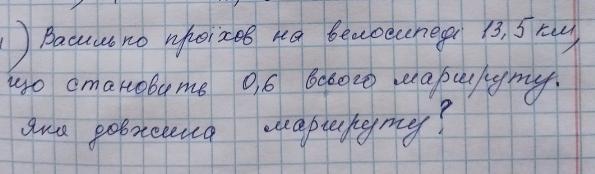 ) Василько проїхав на велосипеді 13,5 км,
що становить 0,6 всього маршруту.
Яка довжина маршруту?